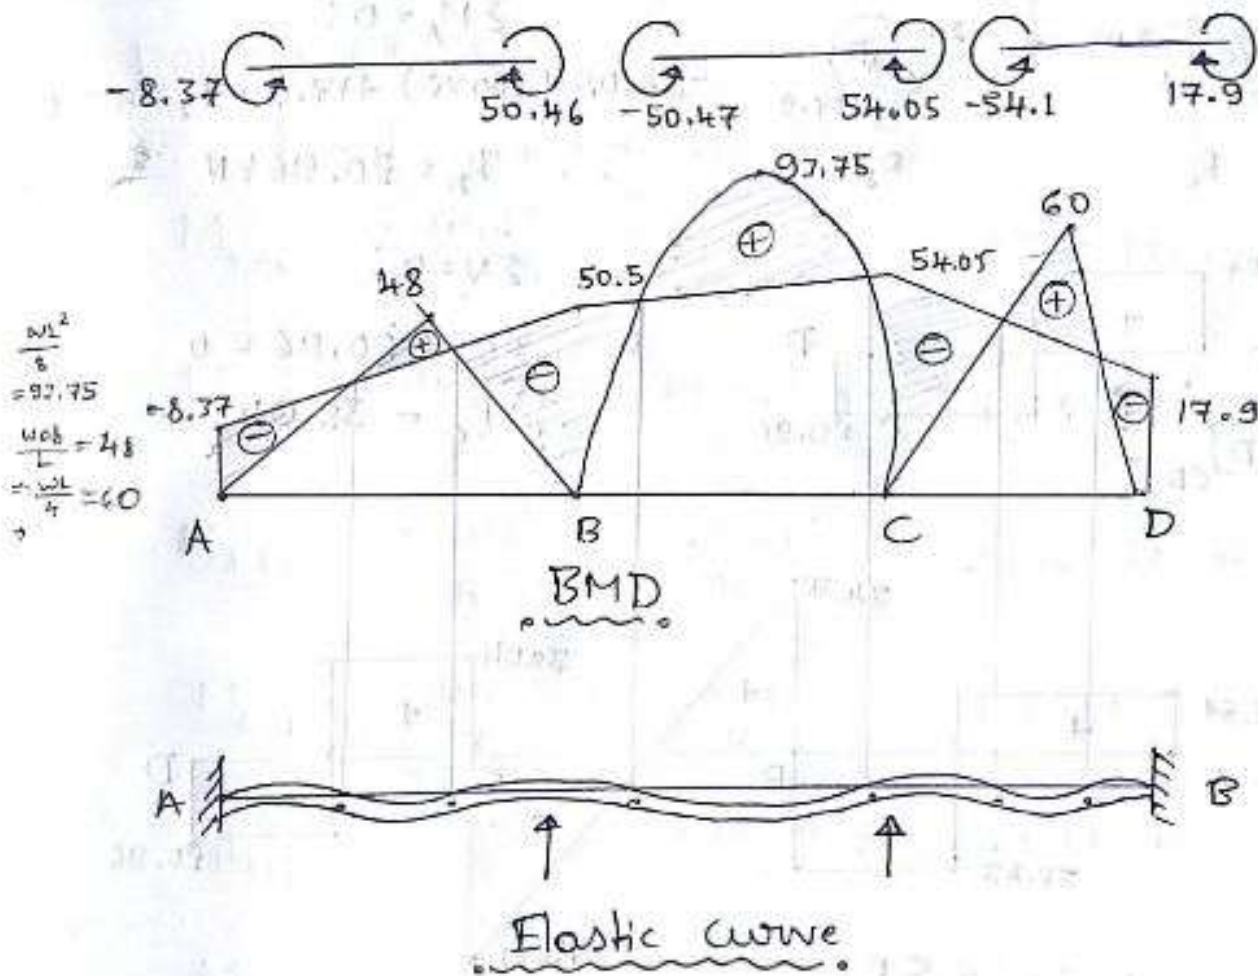 -8.37 50.46 -50.47 54.05 -54.1 17.9
93.75
60
48 50.5 54.05
⊕ ⊕ ⊕
⊖ ⊖ ⊖ ⊖
wL²/8
=93.75
-8.37
wab/L = 48
wL/4 = 60
17.9
A B C D
BMD
A B
Elastic curve